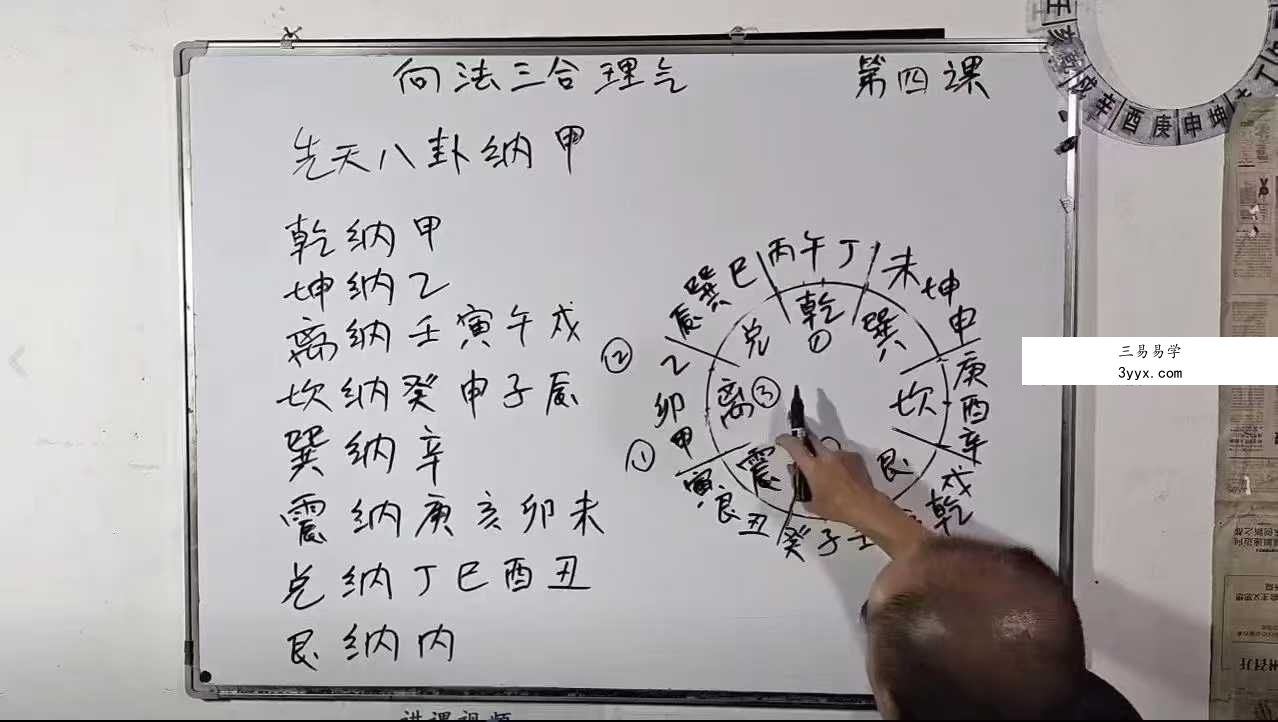 向法三合理气 第四课
先天八卦纳甲
乾纳甲
坤纳乙
离纳壬寅午戌
坎纳癸申子辰
巽纳辛
震纳庚亥卯未
兑纳丁巳酉丑
艮纳内
辰巽巳
丙午丁
未坤申
庚酉辛
戌乾
壬子癸
丑艮寅
甲卯乙
①
②
乾①
巽
坎
艮
震
离③
兑
三易易学
3yyx.com
辛酉庚申坤